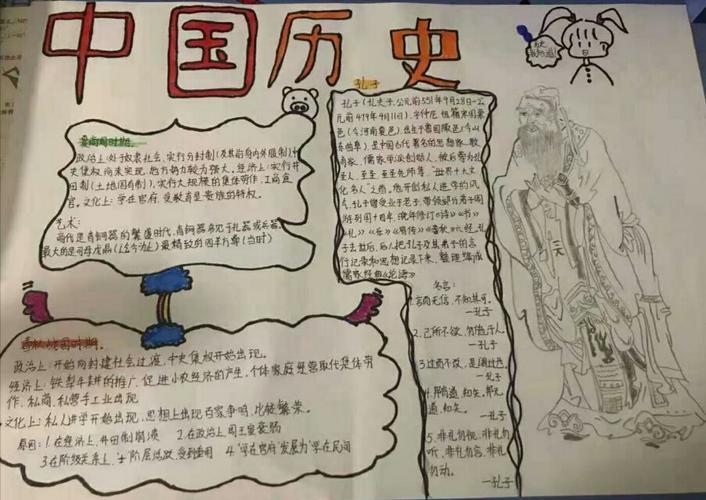 中国历史
历史
夏商周时期:
政治上:处于奴隶社会,实行分封制
史集权尚未实现,地方势力较为强大。经济上:实行井
田制(土地国有制),实行大规模的集体劳作,工商食
官。文化上:学在官府,受教育是贵族的特权。
艺术:
商代是青铜器的繁盛时代,青铜器多见于礼器或兵器,
最大的是司母戊鼎(迄今为止)最精致的四羊方尊(当时)
春秋战国时期。
政治上:开始向封建社会过渡,中史集权开始出现。
经济上:铁犁牛耕的推广,促进小农经济的产生,个体家庭经营取代集体劳
作,私商,私营手工业出现
文化上:私人讲学开始出现,思想上出现百家争鸣,比较繁荣。
原因:1.在经济上,井田制崩溃 2.在政治上周王室衰弱
3.在阶级关系上,"士"阶层活跃,受到重用 4."学在官府"发展为"学在民间
孔子
孔子(孔夫子,公元前551年9月28日-公
元前479年4月11日),字仲尼,祖籍宋国栗
邑(今河南夏邑),出生于鲁国陬邑(今山
东曲阜),是中国古代著名的思想家、教
育家、儒家学派创始人,被后等为孔
圣人、至圣、至圣先师等,"世界十大文
化名人"之首。他开创私人讲学的风
气,孔子曾受业于老子,带领部分弟子周
游列国十四年,晚年修订《诗》《书》
《礼》《乐》《易传》《春秋》六经。孔
子去世后,后人把孔子及其弟子的言
行记录和思想记录下来,整理编成
儒家经典《论语》
名言:
1.言而无信,不知其可。
—孔子
2.己所不欲,勿施于人。
—孔子
3.过而不改,是谓过也
—孔子
4.
—孔子
5.非礼勿视,非礼勿
听,非礼勿言,非礼
勿动。
—孔子